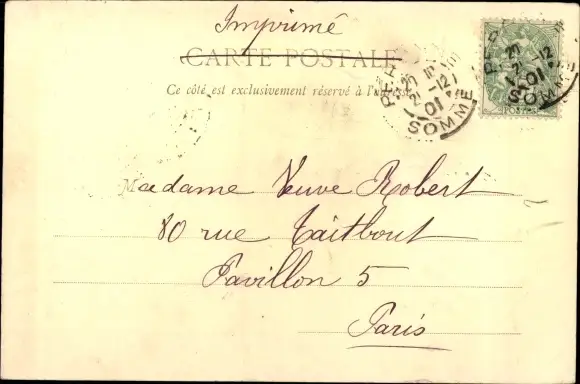 Imprimé
CARTE POSTALE
Ce côté est exclusivement réservé à l'adresse
SOMME
SOMME
POSTES
Madame Veuve Robert
80 rue Taitbout
Pavillon 5
Paris